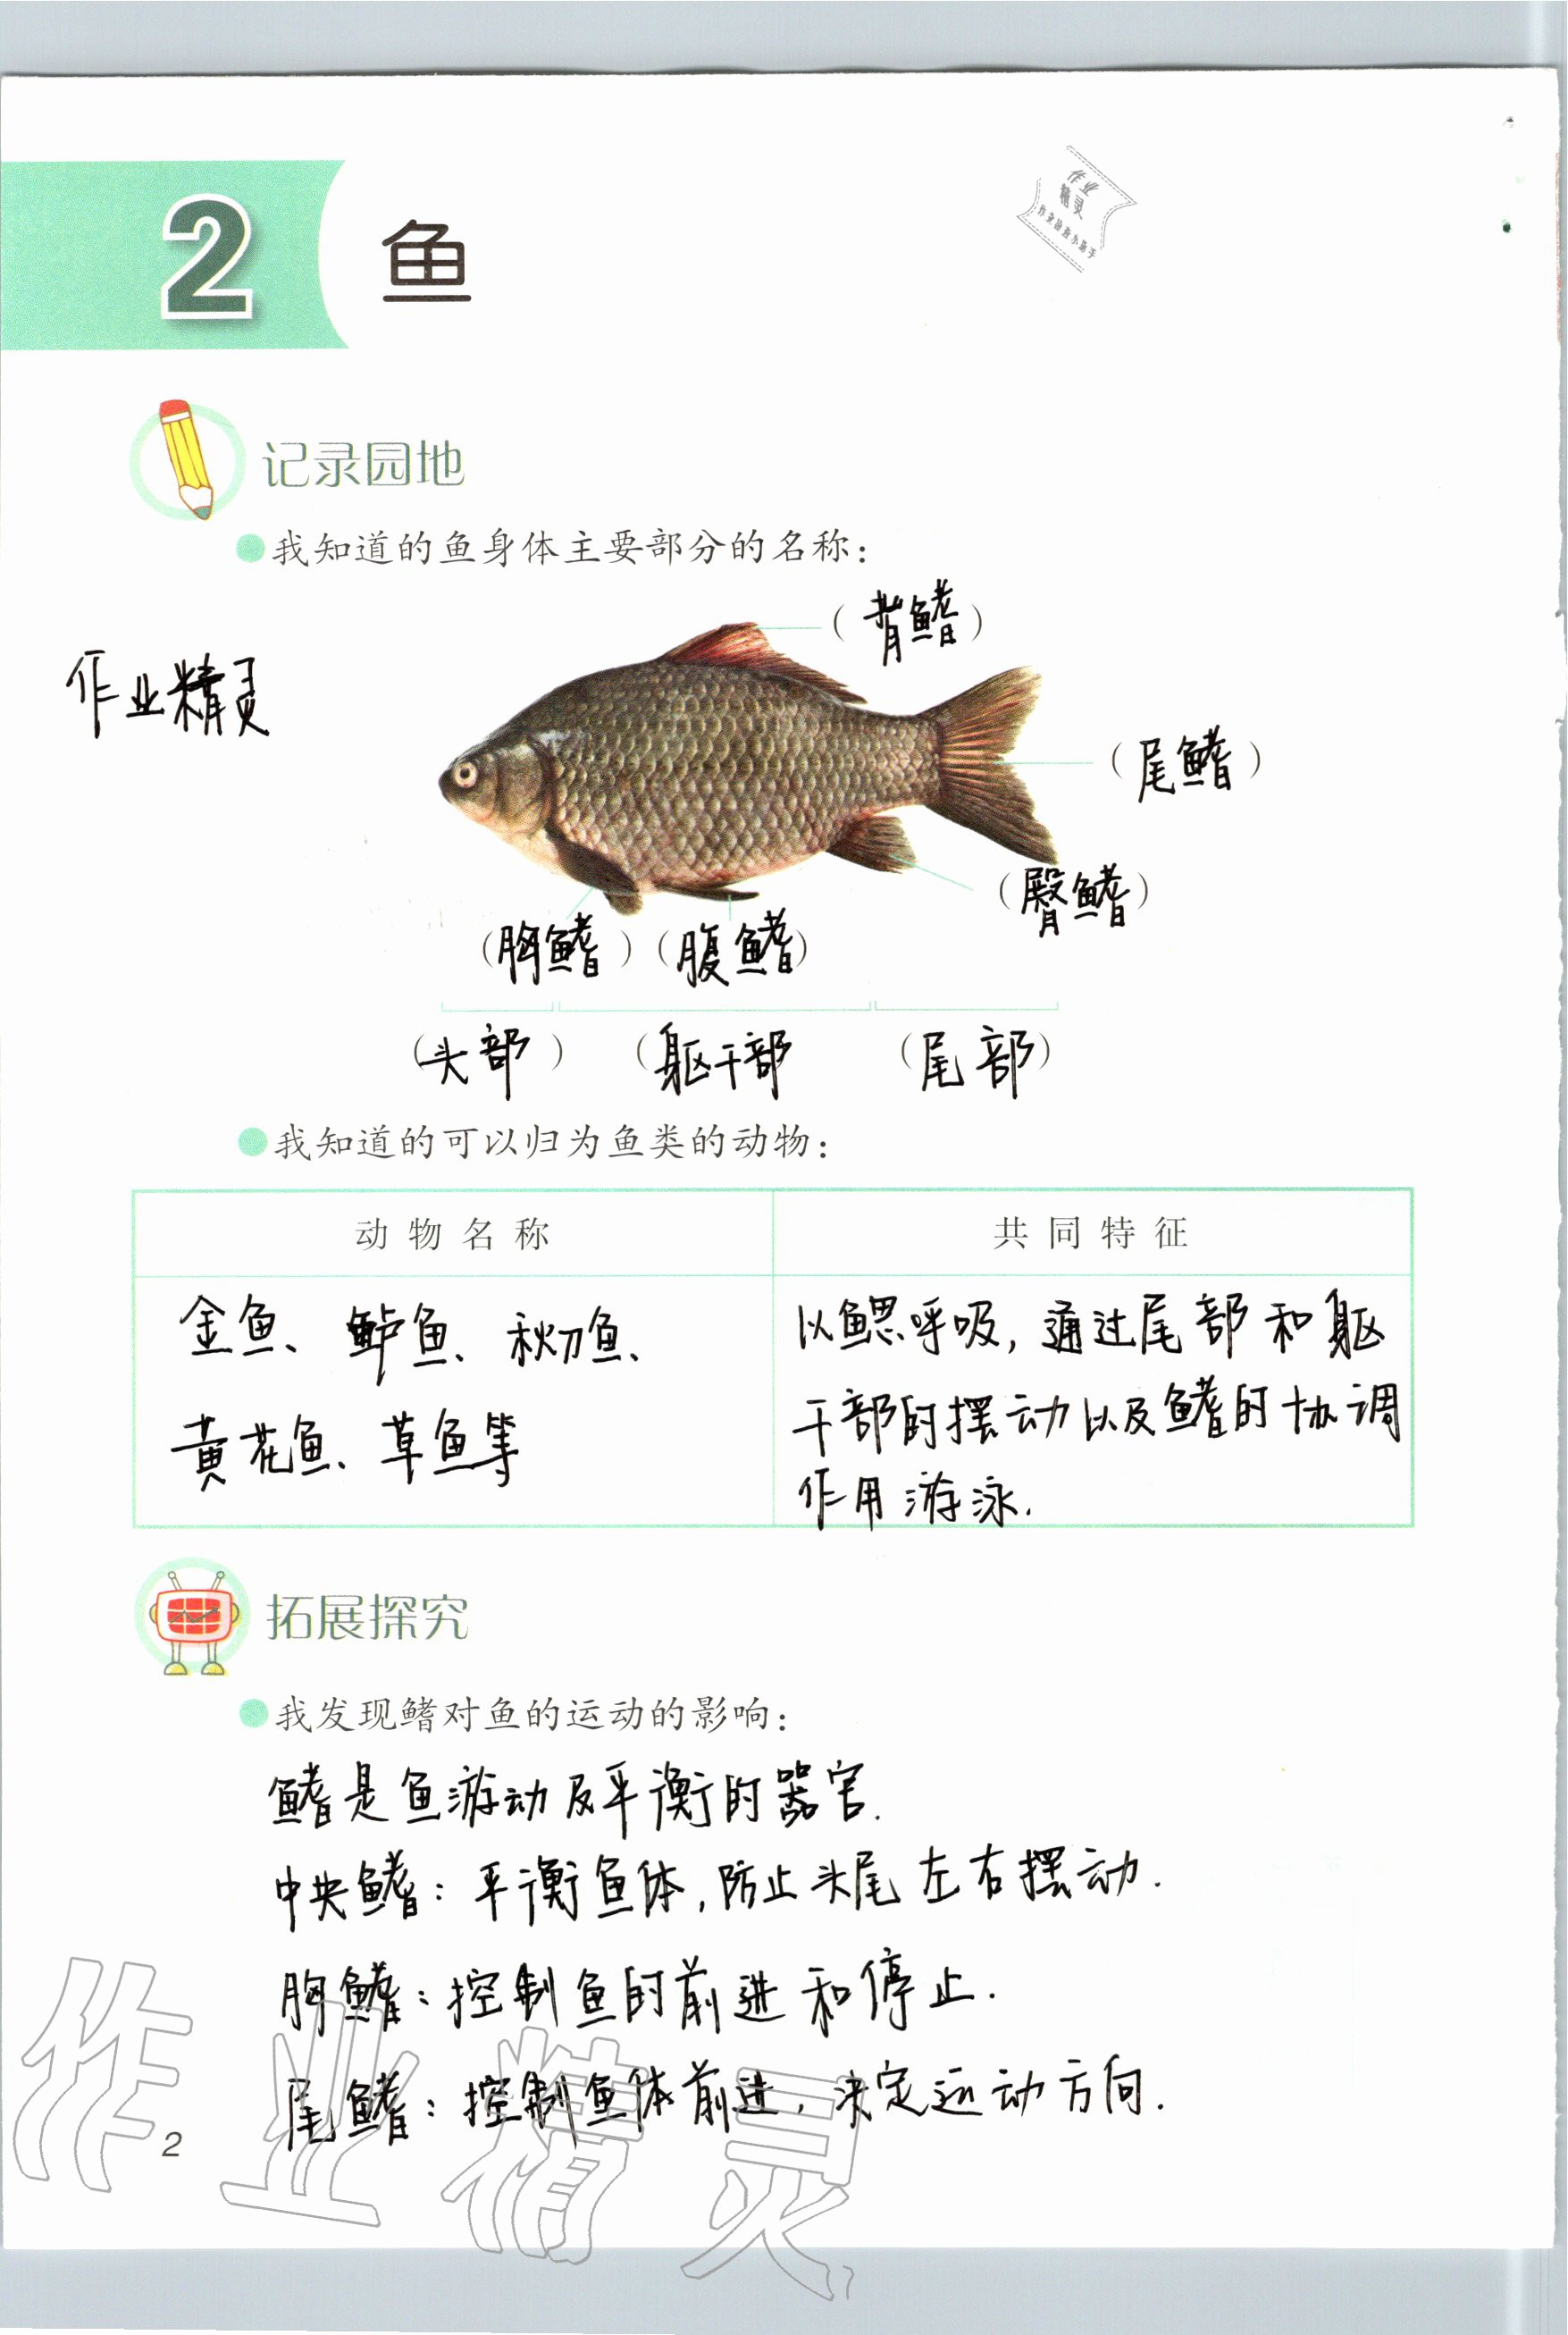 2 鱼
作业
精灵
作业检查小助手
记录园地
我知道的鱼身体主要部分的名称：
（背鳍）
作业精灵
（尾鳍）
（臀鳍）
（胸鳍）（腹鳍）
（头部）（躯干部 （尾部）
我知道的可以归为鱼类的动物：
动物名称 共同特征
金鱼、鲈鱼、秋刀鱼、
黄花鱼、草鱼等
以鱼鳃呼吸，通过尾部和躯
干部的摆动以及鳍的协调
作用游泳.
拓展探究
我发现鳍对鱼的运动的影响：
鳍是鱼游动及平衡的器官.
中央鳍：平衡鱼体，防止头尾左右摆动.
胸鳍：控制鱼的前进和停止.
尾鳍：控制鱼体前进，决定运动方向.
2
作业精灵